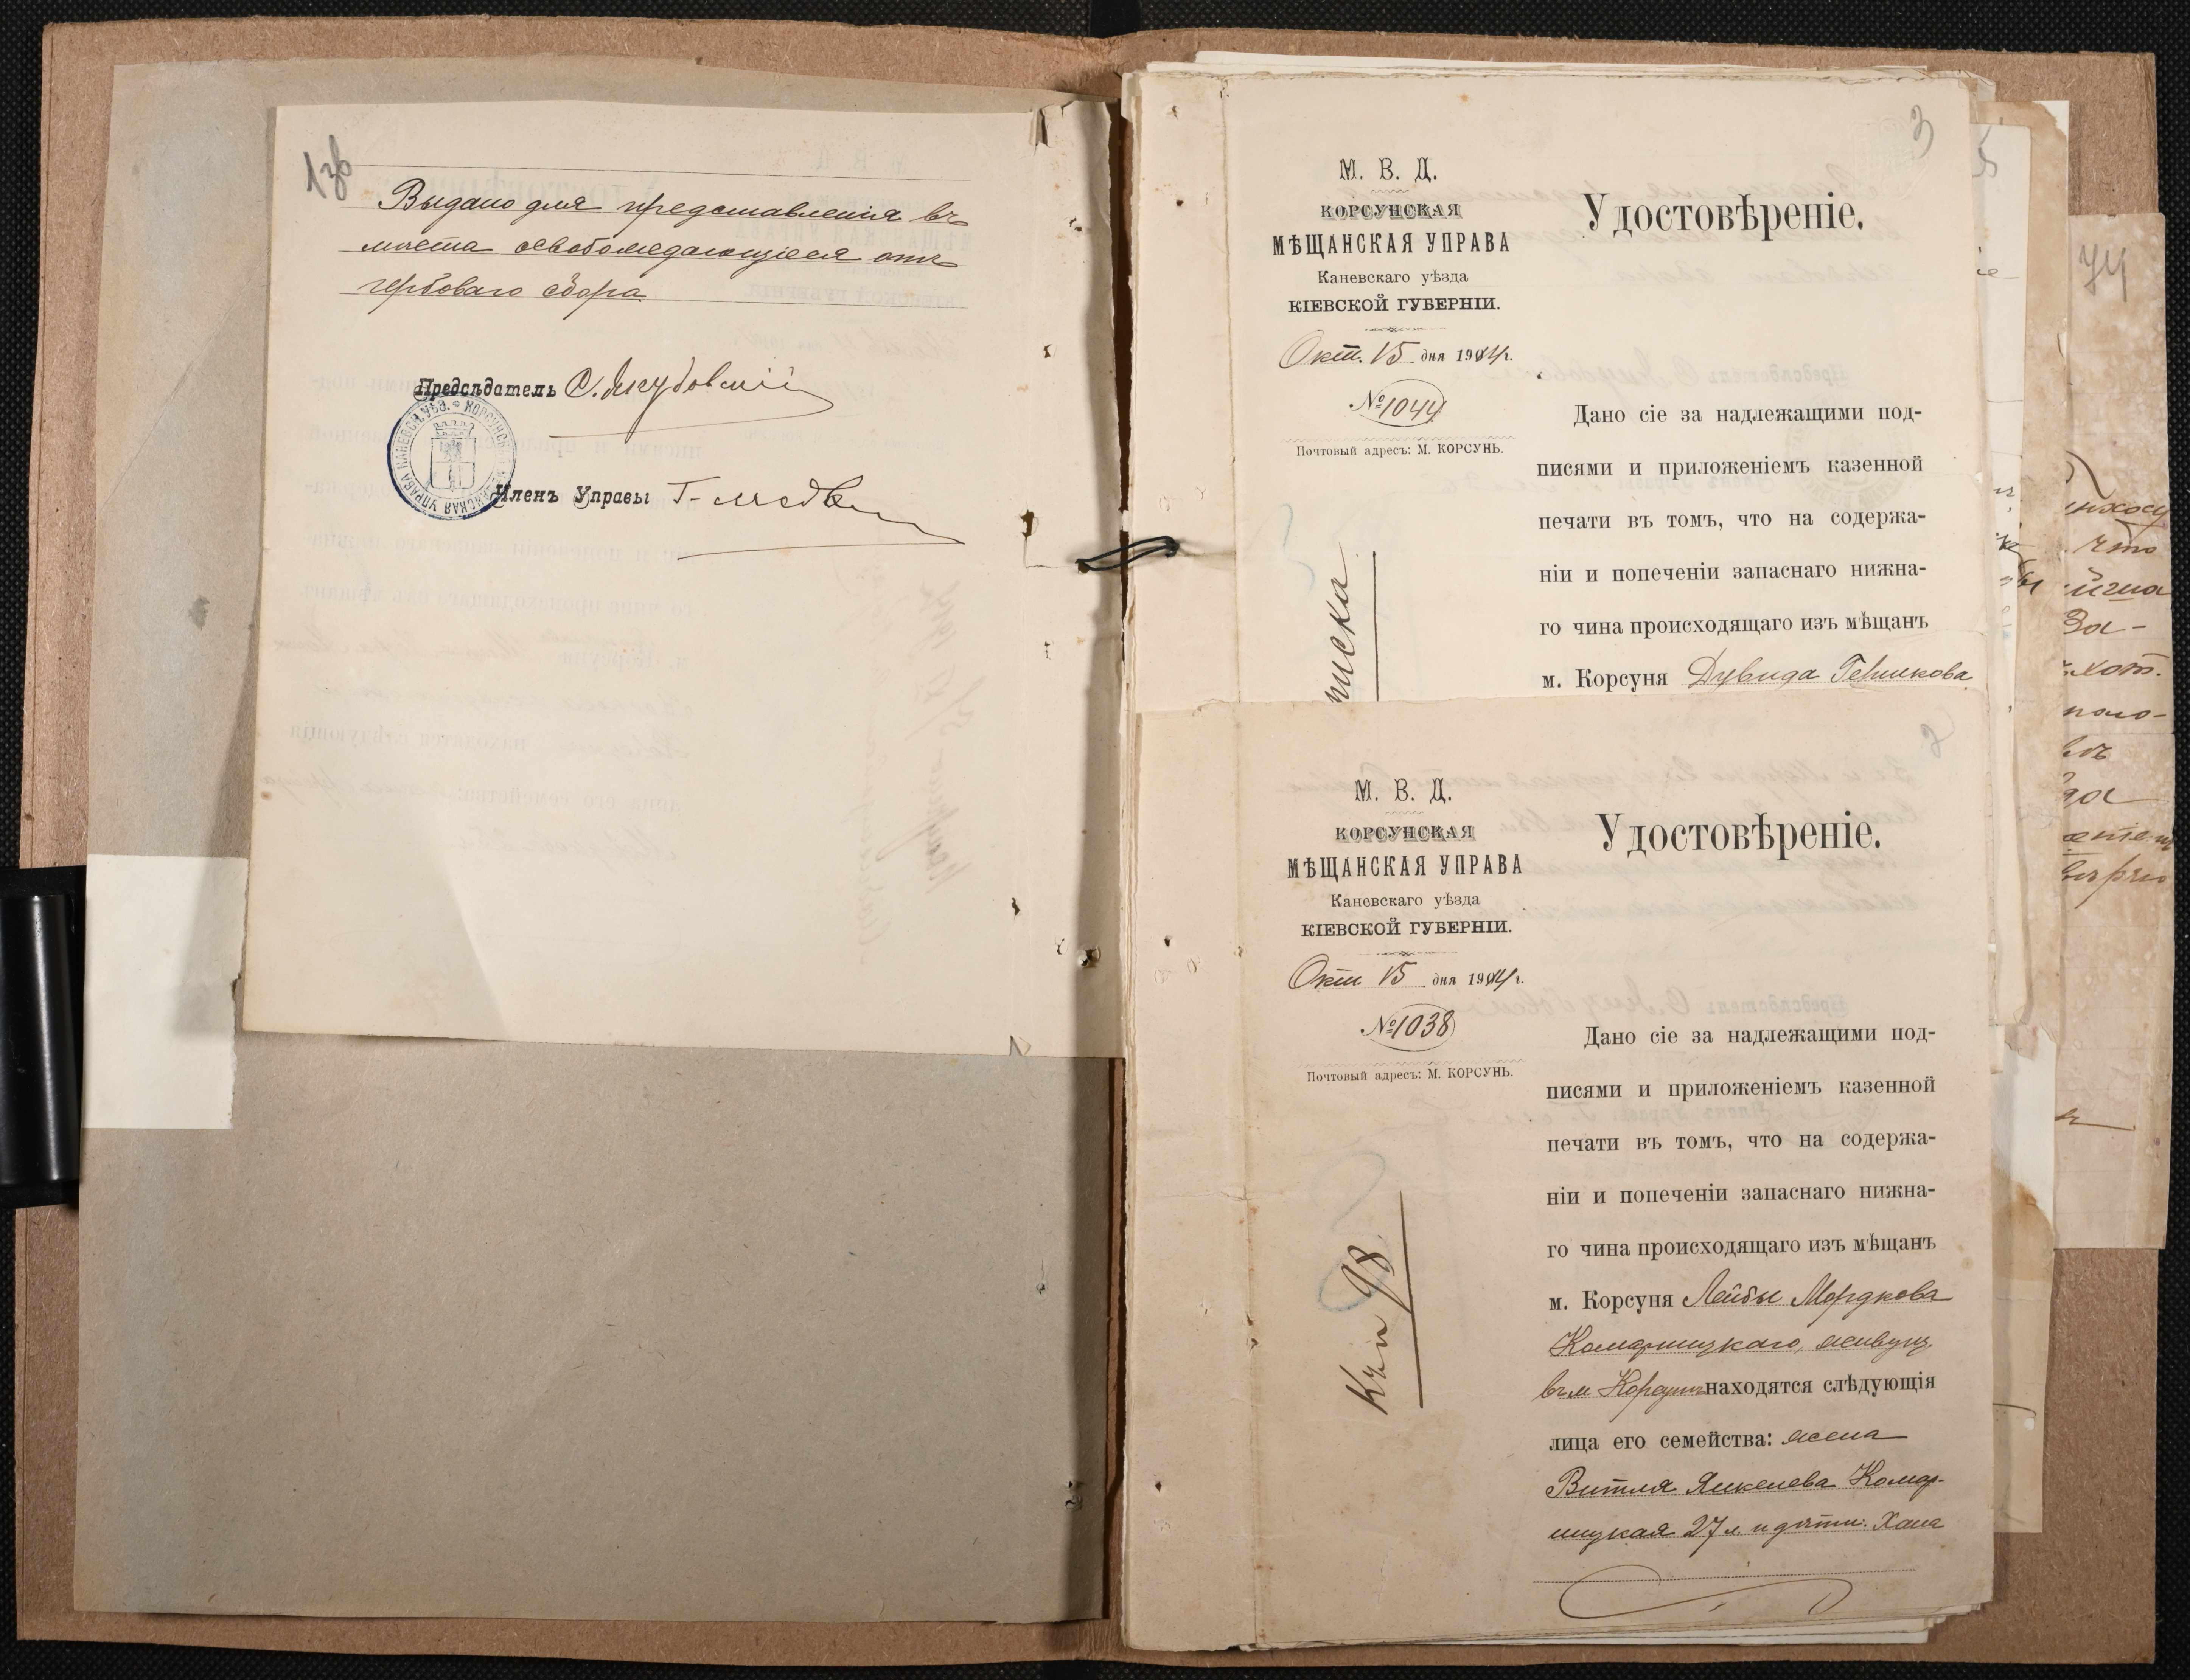 Выдано для представленія въ
мѣста освобождающіеся отъ
гербоваго сбора.
Предсѣдатель
КОРСУНСКАЯ МѢЩАНСКАЯ УПРАВА КАНЕВСК. УѢЗ.
Членъ Управы
3
М. В. Д.
КОРСУНСКАЯ
МѢЩАНСКАЯ УПРАВА
Каневскаго уѣзда
КІЕВСКОЙ ГУБЕРНІИ.
Окт. 15 дня 1914г.
№1044
Почтовый адресъ: М. КОРСУНЬ.
Удостовѣреніе.
Дано сіе за надлежащими под-
писями и приложеніемъ казенной
печати въ томъ, что на содержа-
ніи и попеченіи запаснаго нижня-
го чина происходящаго изъ мѣщанъ
м. Корсуня Дувида Гершкова
2
М. В. Д.
КОРСУНСКАЯ
МѢЩАНСКАЯ УПРАВА
Каневскаго уѣзда
КІЕВСКОЙ ГУБЕРНІИ.
Окт. 15 дня 1914г.
№1038
Почтовый адресъ: М. КОРСУНЬ.
Удостовѣреніе.
Дано сіе за надлежащими под-
писями и приложеніемъ казенной
печати въ томъ, что на содержа-
ніи и попеченіи запаснаго нижня-
го чина происходящаго изъ мѣщанъ
м. Корсуня Лейбы Мордкова
Комарницкаго, живущ.
въ м. Корсунѣ находятся слѣдующія
лица его семейства: жена
Витля Янкелева Комар-
ницкая 27 л. и дѣти: Хана
98
74
что
За-